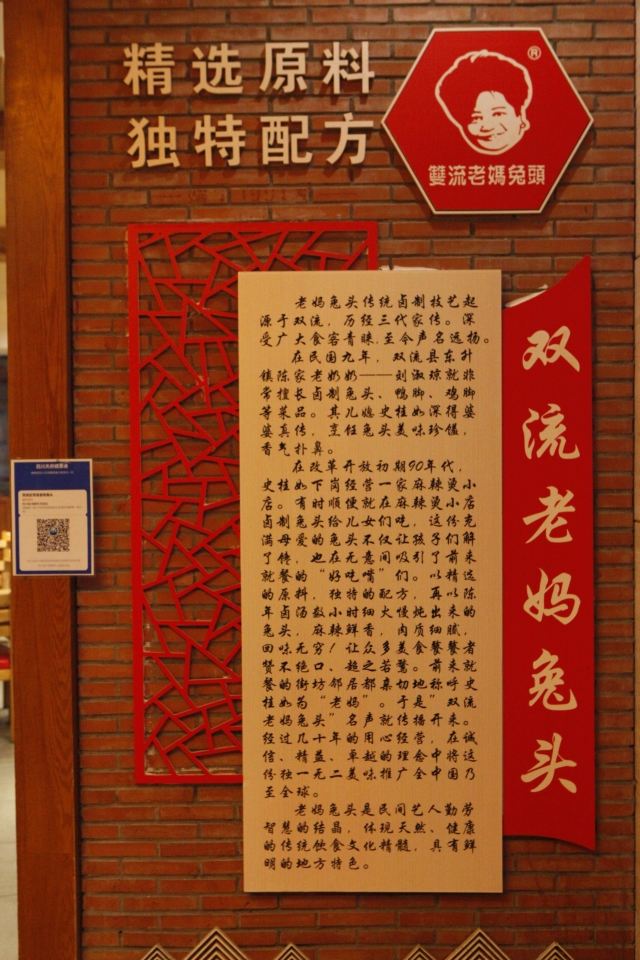 精选原料
独特配方
®
雙流老媽兔頭
老妈兔头传统卤制技艺起
源于双流，历经三代家传。深
受广大食客青睐，至今声名远扬。
在民国九年，双流县东升
镇陈家老奶奶——刘淑琼就非
常擅长卤制兔头、鸭脚、鸡脚
等菜品。其儿媳史桂如深得婆
婆真传，烹饪兔头美味珍馐，
香气扑鼻。
在改革开放初期90年代，
史桂如下岗经营一家麻辣烫小
店。有时顺便就在麻辣烫小店
卤制兔头给儿女们吃，这份充
满母爱的兔头不仅让孩子们解
了馋，也在无意间吸引了前来
就餐的“好吃嘴”们。以精选
的原料，独特的配方，再以陈
年卤汤数小时细火慢炖出来的
兔头，麻辣鲜香，肉质细腻，
回味无穷！让众多美食饕餮者
赞不绝口、趋之若鹜。前来就
餐的街坊邻居都亲切地称呼史
桂如为“老妈”。于是“双流
老妈兔头”名声就传扬开来。
经过几十年的用心经营，在诚
信、精益、卓越的理念中将这
份独一无二美味推广全中国乃
至全球。
老妈兔头是民间艺人勤劳
智慧的结晶，体现天然、健康
的传统饮食文化精髓，具有鲜
明的地方特色。
双流老妈兔头